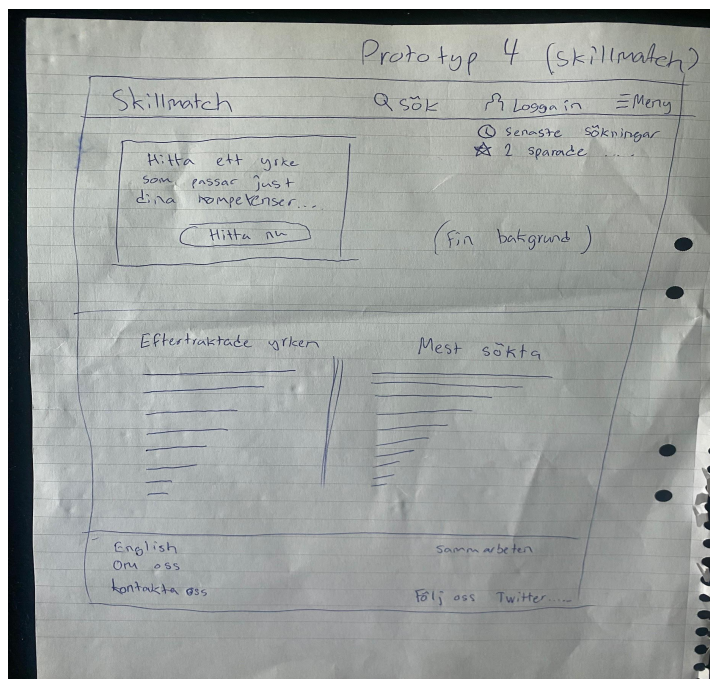 Prototyp 4 (skillmatch)
Skillmatch
sök
Logga in
Meny
senaste sökningar
2 sparade .....
Hitta ett yrke
som passar just
dina kompetenser...
Hitta nu
(Fin bakgrund)
Eftertraktade yrken
Mest sökta
English
Om oss
kontakta oss
sammarbeten
Följ oss Twitter.....